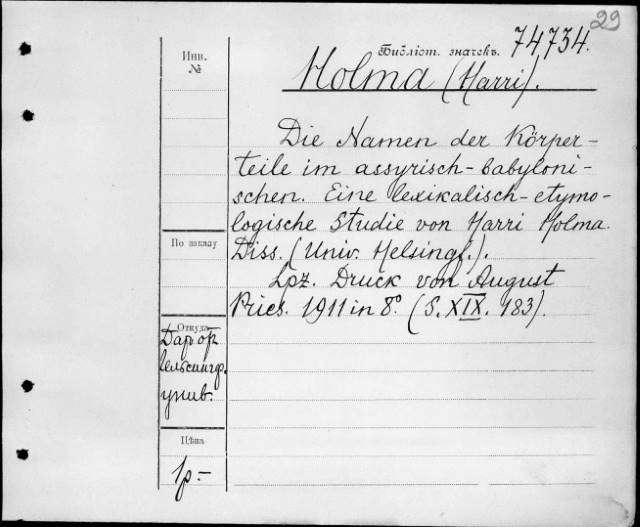 29
Инв.
№
Библіот. значекъ. 74734.
Holma (Harri).
Die Namen der Körper-
teile im assyrisch-babyloni-
schen. Eine lexikalisch-etymo-
logische Studie von Harri Holma.
Diss. (Univ. Helsingf.).
Lpz. Druck von August
Pries. 1911 in 8° (S. XIX. 183).
По заказу
Откуда
Даръ от
Гельсингф.
унив.
Цѣна
1р.-